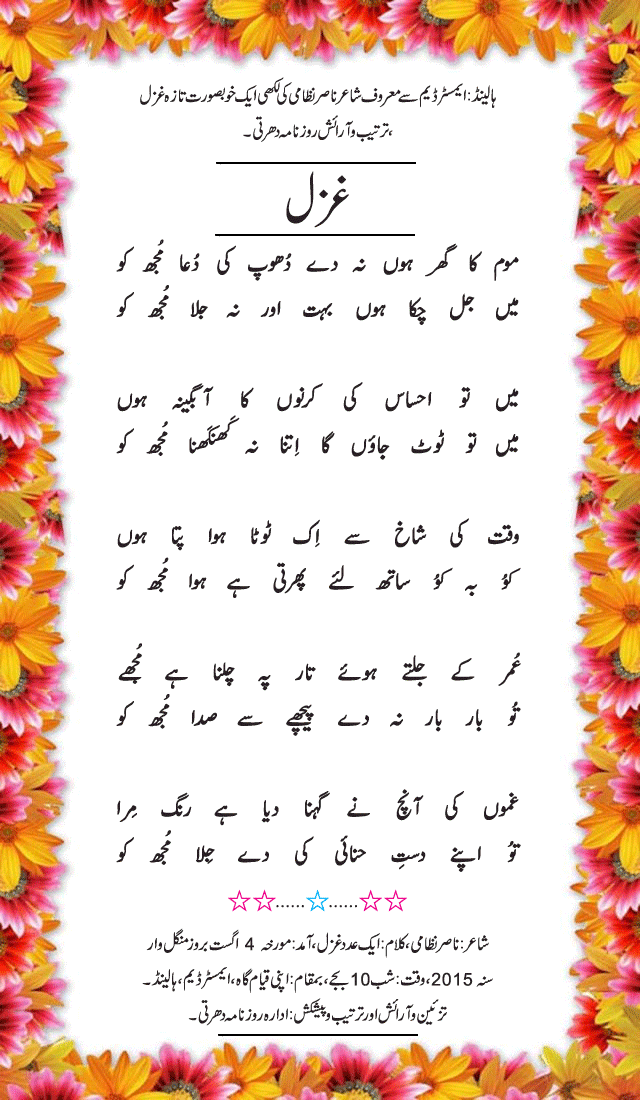 ہالینڈ: ایمسٹرڈیم سے معروف شاعر ناصر نظامی کی لکھی ایک خوبصورت تازہ غزل
،ترتیب و آرائش روزنامہ دھرتی۔
غزل
موم کا گھر ہوں نہ دے دُھوپ کی دُعا مُجھ کو
میں جل چکا ہوں بہت اور نہ جلا مُجھ کو
میں تو احساس کی کرنوں کا آبگینہ ہوں
میں تو ٹوٹ جاؤں گا اِتنا نہ کَھنکَھنا مُجھ کو
وقت کی شاخ سے اِک ٹوٹا ہوا پتا ہوں
کوُ بہ کوُ ساتھ لئے پھرتی ہے ہوا مُجھ کو
عُمر کے جلتے ہوئے تار پہ چلنا ہے مُجھے
تُو بار بار نہ دے پیچھے سے صدا مُجھ کو
غموں کی آنچ نے گہنا دیا ہے رنگ مِرا
توُ اپنے دستِ حنائی کی دے جِلا مُجھ کو
☆☆......☆......☆☆
شاعر: ناصر نظامی، کلام: ایک عدد غزل، آمد: مورخہ 4 اگست بروز منگل وار
سنہ 2015، وقت: شب 10 بجے، بمقام: اپنی قیام گاہ، ایمسٹرڈیم، ہالینڈ۔
تزئین و آرائش اور ترتیب و پیشکش: ادارہ روزنامہ دھرتی۔